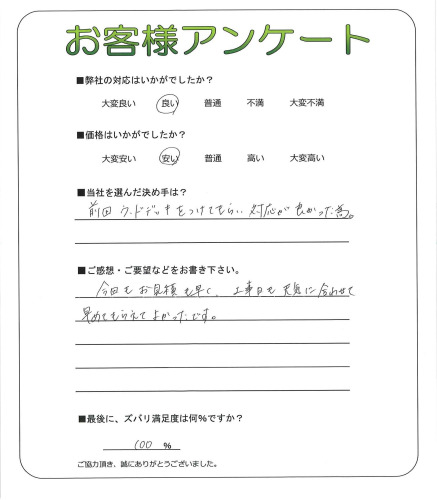 お客様アンケート
■弊社の対応はいかがでしたか？
大変良い 良い 普通 不満 大変不満
■価格はいかがでしたか？
大変安い 安い 普通 高い 大変高い
■当社を選んだ決め手は？
前回ウッドデッキをつけてもらい対応が良かった為。
■ご感想・ご要望などをお書き下さい。
今回もお見積も早く、工事日も天気に合わせて
早めてもらえてよかったです。
■最後に、ズバリ満足度は何%ですか？
100 %
ご協力頂き、誠にありがとうございました。